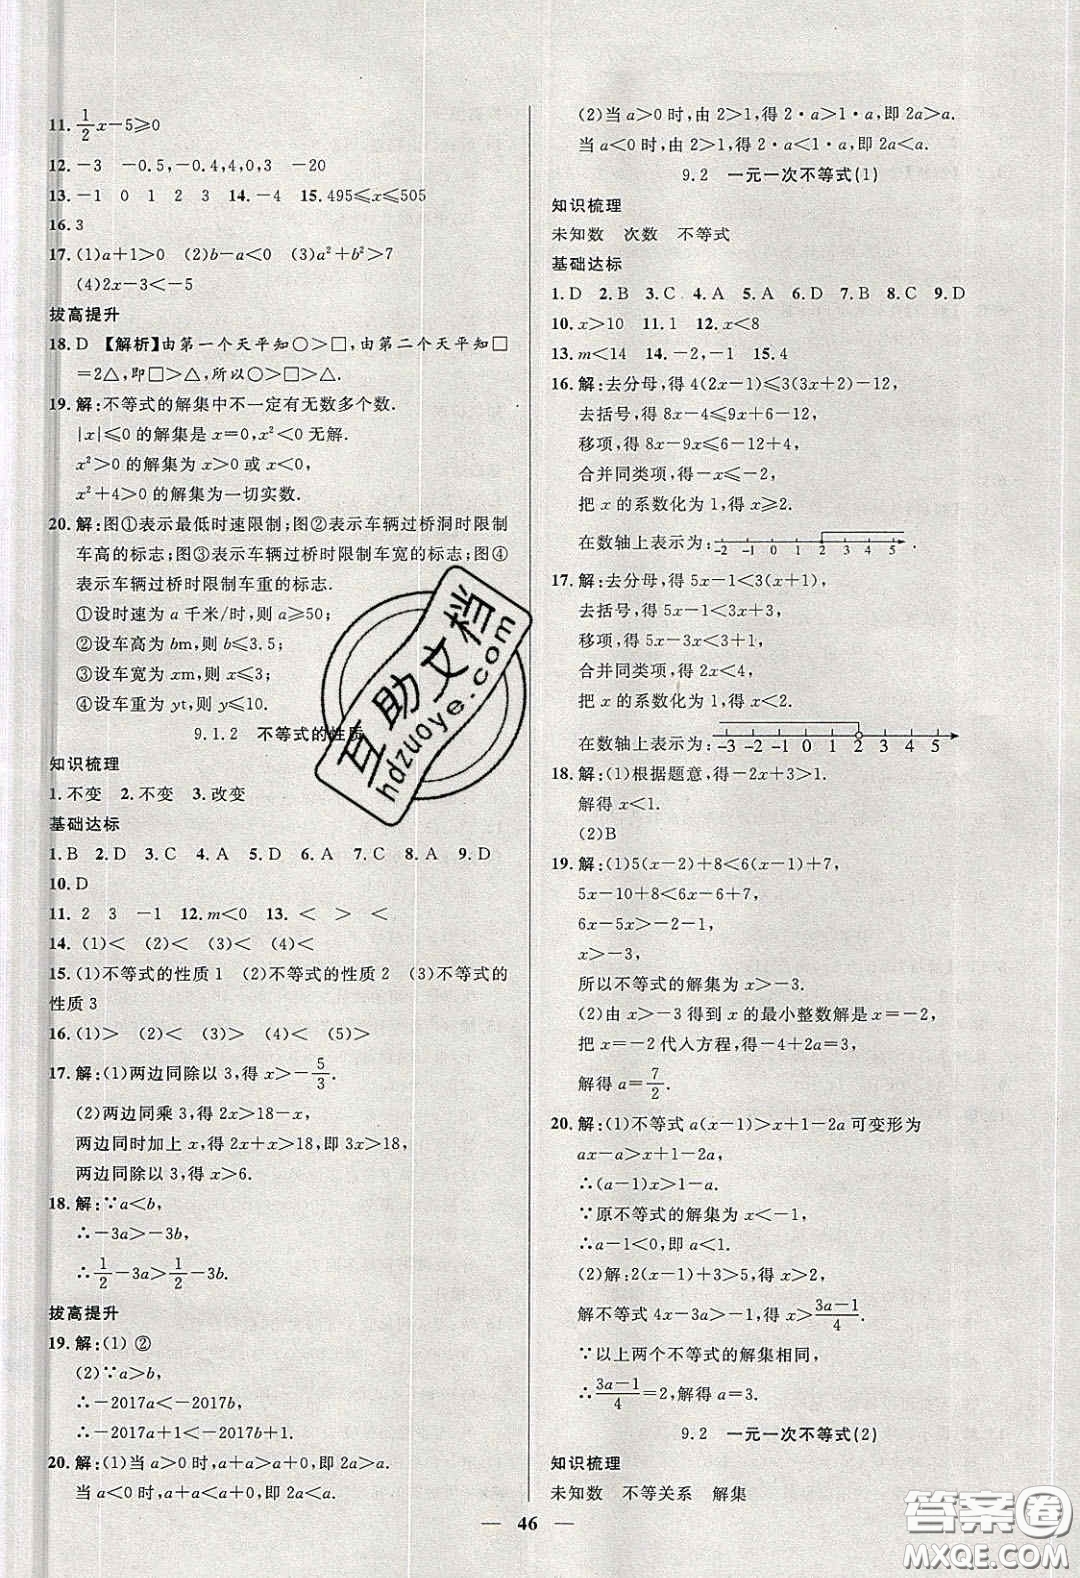 11. 1/2x-5≥0
12. -3　-0.5,-0.4,4,0,3　-20
13. -1　0　1　2　3　14. -4　15. 495≤x≤505
16. 3
17. (1)a+1>0　(2)b-a<0　(3)a²+b²>7
(4)2x-3<-5
拔高提升
18. D 【解析】由第一个天平知○>□,由第二个天平知□
=2△,即□>△,所以○>□>△.
19. 解:不等式的解集中不一定有无数多个数.
|x|≤0 的解集是 x=0,x²<0 无解.
x²>0 的解集为 x>0 或 x<0.
x²+4>0 的解集为一切实数.
20. 解:图①表示最低时速限制;图②表示车辆过桥洞时限制
车高的标志;图③表示车辆过桥时限制车宽的标志;图④
表示车辆过桥时限制车重的标志.
①设时速为 a 千米/时,则 a≥50;
②设车高为 bm,则 b≤3.5;
③设车宽为 xm,则 x≤3;
④设车重为 yt,则 y≤10.
9.1.2　不等式的性质
知识梳理
1. 不变　2. 不变　3. 改变
基础达标
1. B　2. D　3. C　4. A　5. D　6. A　7. C　8. A　9. D
10. D
11. 2　3　-1　12. m<0　13. <　>　<
14. (1)<　(2)<　(3)<　(4)<
15. (1)不等式的性质 1　(2)不等式的性质 2　(3)不等式的
性质 3
16. (1)>　(2)<　(3)>　(4)<　(5)>
17. 解:(1)两边同除以 3,得 x>-5/3.
(2)两边同乘 3,得 2x>18-x,
两边同时加上 x,得 2x+x>18,即 3x>18,
两边同除以 3,得 x>6.
18. 解:∵a<b,
∴-3a>-3b,
∴1/2-3a>1/2-3b.
拔高提升
19. 解:(1) ②
(2)∵a>b,
∴-2017a<-2017b,
∴-2017a+1<-2017b+1.
20. 解:(1)当 a>0 时,a+a>a+0,即 2a>a.
当 a<0 时,a+a<a+0,即 2a<a.
(2)当 a>0 时,由 2>1,得 2·a>1·a,即 2a>a.
当 a<0 时,由 2>1,得 2·a<1·a,即 2a<a.
9.2　一元一次不等式(1)
知识梳理
未知数　次数　不等式
基础达标
1. D　2. B　3. C　4. A　5. A　6. D　7. B　8. C　9. D
10. x>10　11. 1　12. x<8
13. m<14　14. -2,-1　15. 4
16. 解:去分母,得 4(2x-1)≤3(3x+2)-12,
去括号,得 8x-4≤9x+6-12,
移项,得 8x-9x≤6-12+4,
合并同类项,得-x≤-2,
把 x 的系数化为 1,得 x≥2.
在数轴上表示为: -2 -1 0 1 2 3 4 5 .
17. 解:去分母,得 5x-1<3(x+1),
去括号,得 5x-1<3x+3,
移项,得 5x-3x<3+1,
合并同类项,得 2x<4,
把 x 的系数化为 1,得 x<2.
在数轴上表示为: -3 -2 -1 0 1 2 3 4 5
18. 解:(1)根据题意,得-2x+3>1.
解得 x<1.
(2)B
19. 解:(1)5(x-2)+8<6(x-1)+7,
5x-10+8<6x-6+7,
6x-5x>-10+8+6-7,
x>-3,
所以不等式的解集为 x>-3.
(2)由 x>-3 得到 x 的最小整数解是 x=-2,
把 x=-2 代入方程,得-4+2a=3,
解得 a=7/2.
20. 解:(1)不等式 a(x-1)>x+1-2a 可变形为
ax-a>x+1-2a,
∴(a-1)x>1-a.
∵原不等式的解集为 x<-1,
∴a-1<0,即 a<1.
(2)解:2(x-1)+3>5,得 x>2,
解不等式 4x-3a>-1,得 x>(3a-1)/4.
∵以上两个不等式的解集相同,
∴(3a-1)/4=2,解得 a=3.
9.2　一元一次不等式(2)
知识梳理
未知数　不等关系　解集
— 46 —
互助文档
hdzuoye.com
答案圈
MXQE.COM